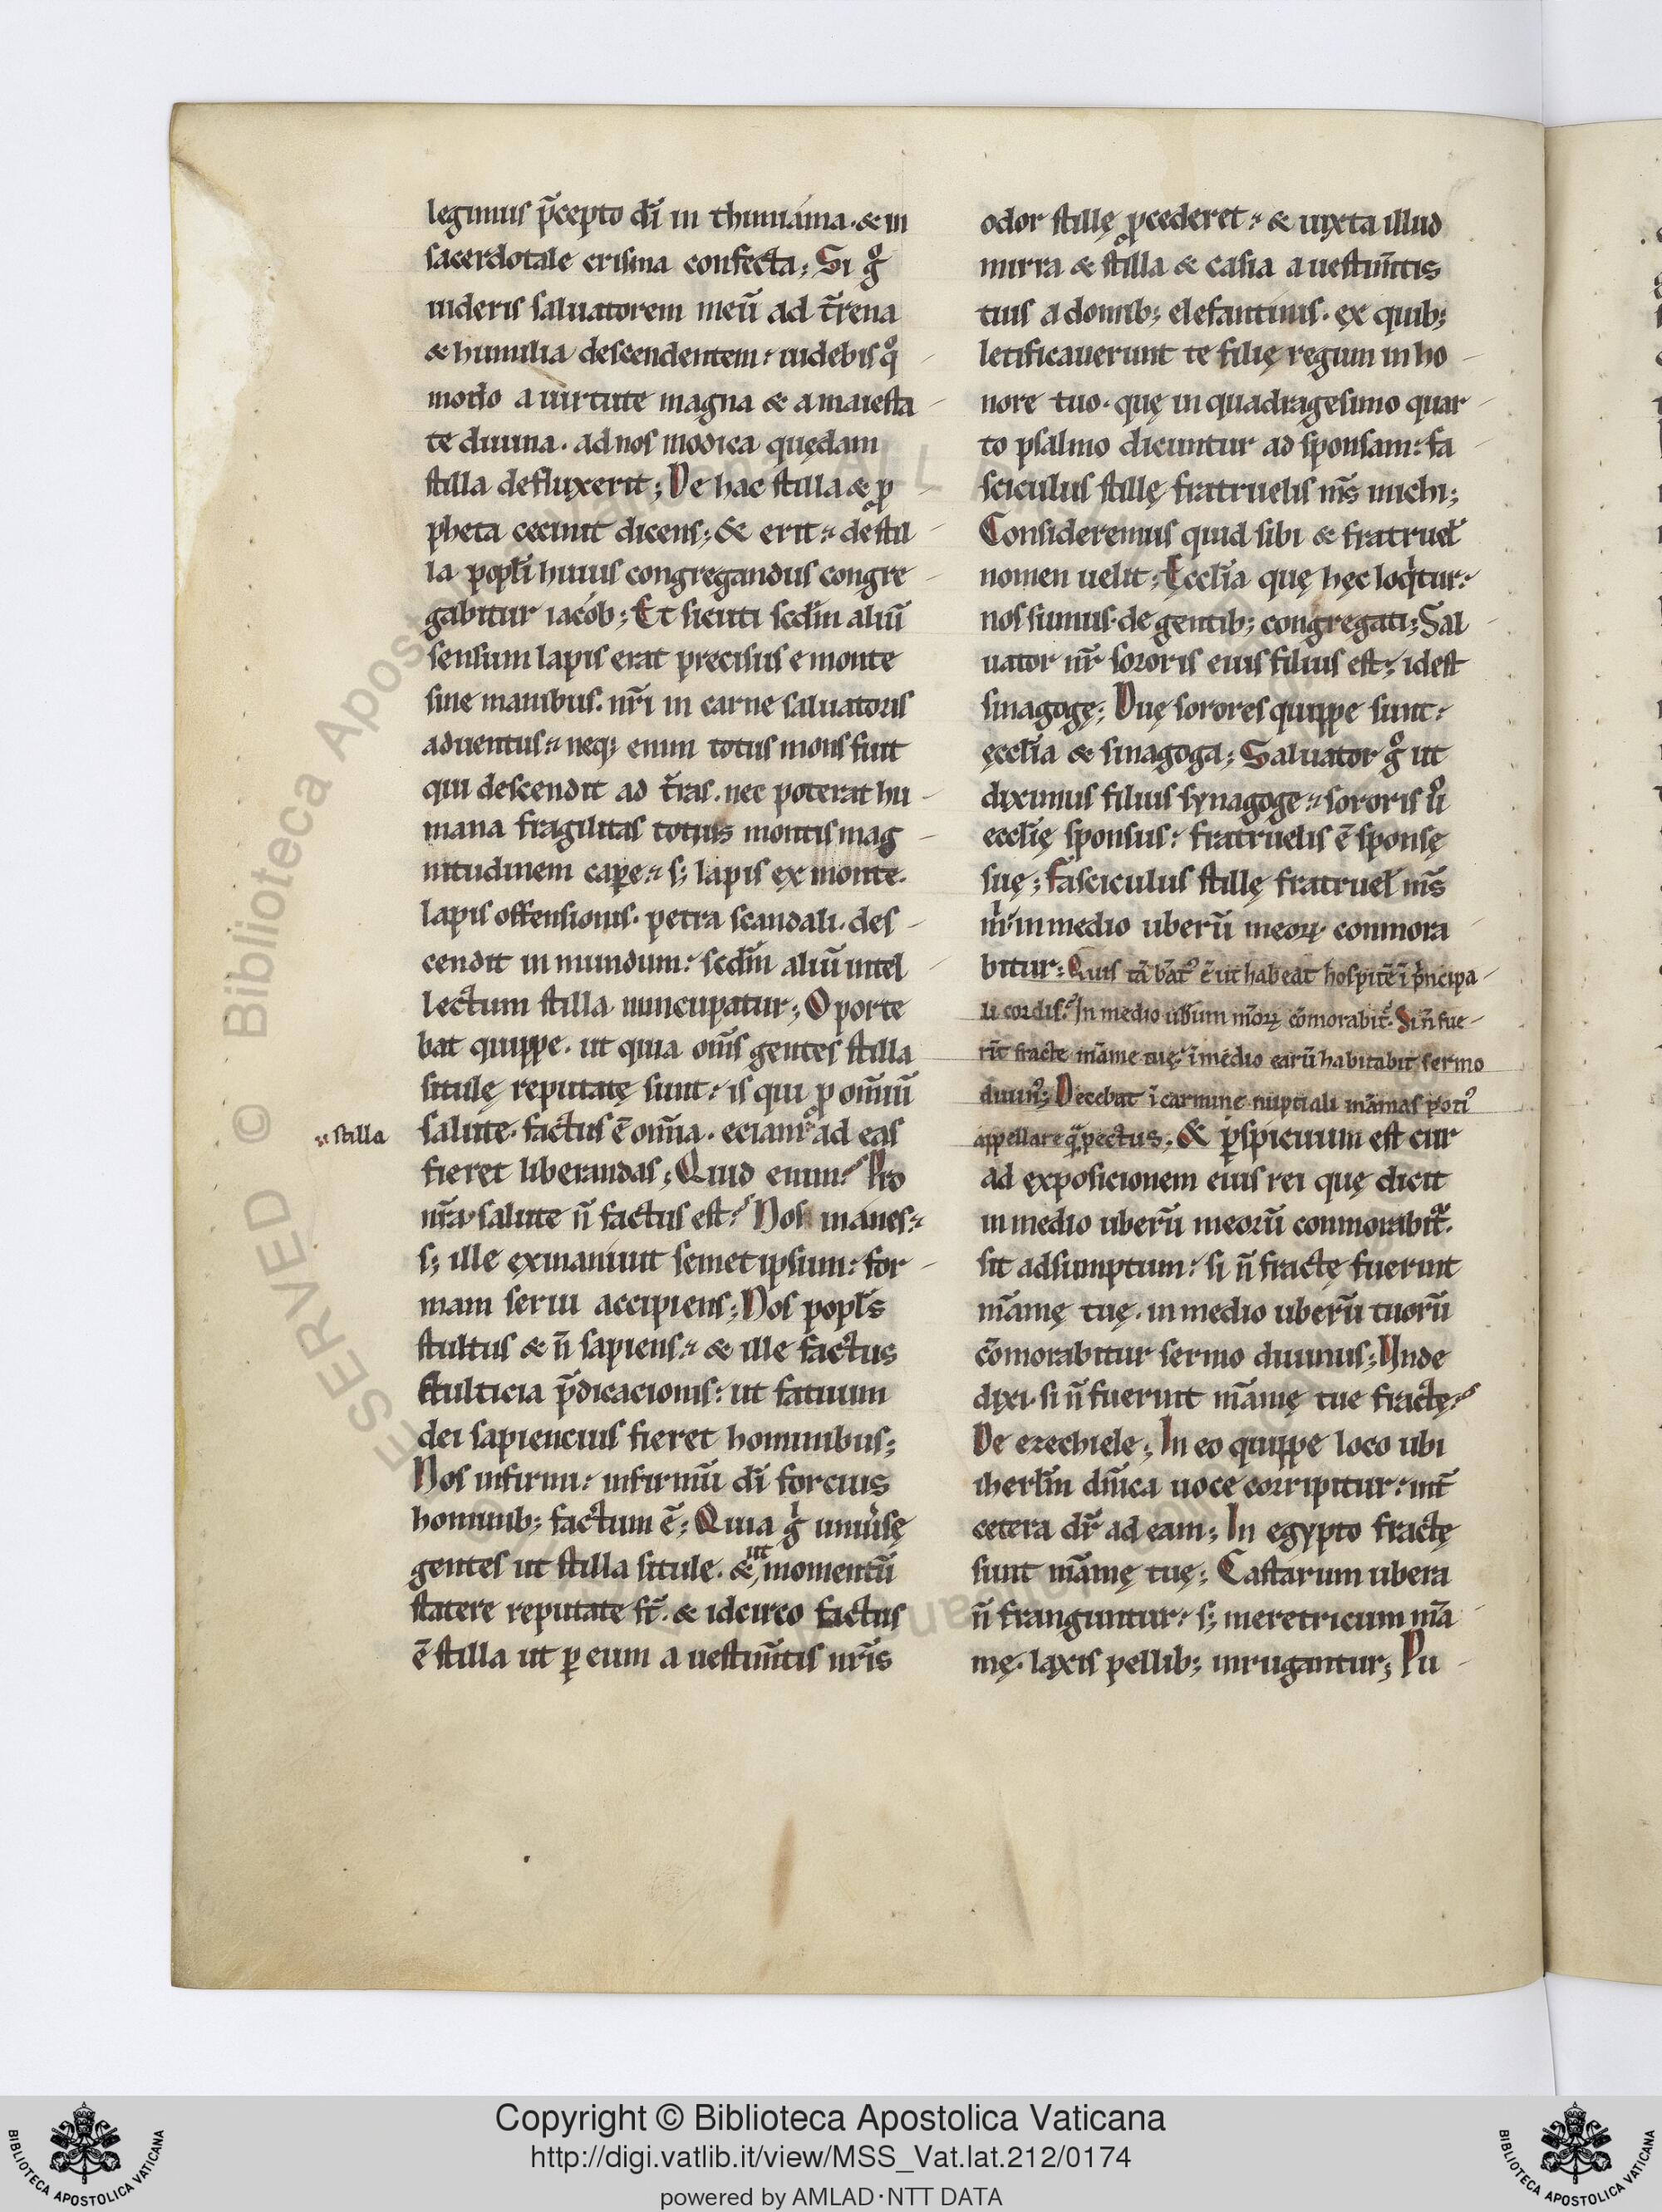 legimus p̄cepto dī in thimiáma · & in
sacerdotale crisma confecta; Si gͦ
uideris saluatorem meū ad t̄rena
& humilia descendentem · uidebis qͦ
modo a uirtute magna & a maiesta
te diuina · ad nos modica quędam
stilla defluxerit; De hac stilla & ꝓ
pheta cecinit dicens; & erit · de stil
la popłi huius congregandus congre
gabitur iacób; Et sicuti scdm̄ aliū
sensum lapis erat precisus e monte
sine manibus · nr̄i in carne saluatoris
aduentus · neq; enim totus mons fuit
qui descendit ad t̄ras · nec poterat hu
mana fragilitas totius montis mag
nitudinem cape · s; lapis ex monte ·
lapis offensionis · petra scandali · des
cendit in mundum · scdm̄ aliū intel
lectum stilla nuncupatur; Oporte
bat quippe · ut quia om̄s gentes stilla
situlę reputatę sunt · is qui ꝓ omniū
salute · factus ē omia · eciam ad eas
stilla
fieret liberandas; Quid enim? Pro
nr̄a salute n̄ factus est? Nos inanes ·
s; ille exinaniuit semet ipsum · for
mam serui accipiens; Nos popłs
stultus & n̄ sapiens · & ille factus
stulticia p̄dicacionis · ut fatuum
dei sapiencius fieret hominibus;
Nos infirmi · infirmū dī forcius
hominib; factum ē; Quia g̍ uniůsę
gentes ut stilla situle · & ut momentū
statere reputate st̄ · & idcirco factus
ē stilla ut ꝑ eum a uestim̄tis nr̄is
odor stillę ꝓcederet · & iuxta illud
mirra & stilla & casia a uestim̄tis
tuis a domib; elefantinis · ex quib;
letificauerunt te filię regum in ho
nore tuo · quę in quadragesimo quar
to psalmo dicuntur ad sponsam · fa
sciculus stillę fratruelis m̄s michi;
Consideremus quid sibi & fratruel̄
nomen uelit; Ęccłia quę hęc loq̍tur ·
nos sumus · de gentib; congregati; Sal
uator nr̄ sororis eius filius est · id est
sinagogę; Duę sorores quippe sunt ·
ęccłia & sinagoga; Saluator gͦ ut
diximus filius synagoge · sororis uͦ
eccłię sponsus · fratruelis ē sponsę
suę; fasciculus stillę fratruel̄ m̄s
m̍ · in medio uberū meoꝝ conmora
bitur; Quis tā bāt᾽ ē ut habeat hospitē ī p̍ncipa
li cordis? In medio ub̄um m̄oꝝ cōmorabit᷑. Si n̄ fue
rīt fracte māme tuę · ī medio earū habitabit sermo
diuin᾽; Decebat ī carmine nuptiali māmas poti᾽
appellare q̄ pectus; & ꝑspicuum est cur
ad exposicionem eius rei quę dicit
in medio uberū meorū conmorabit᷑ ·
sit adsumptum · si n̄ fractę fuerint
māmę tuę · in medio uberū tuorū
cōmorabitur sermo diuinus; Unde
dixi · si n̄ fuerint māmę tue fractę?
De ezechiele; In eo quippe loco ubi
iherłm dn̄ica uoce corripitur · int̄
cetera dr̄ ad eam; In egypto fractę
sunt māmę tuę; Castarum ubera
n̄ franguntur · s; meretricum mā
mę · laxis pellib; inrugantur; Pu
Copyright © Biblioteca Apostolica Vaticana
http://digi.vatlib.it/view/MSS_Vat.lat.212/0174
powered by AMLAD·NTT DATA
BIBLIOTECA APOSTOLICA VATICANA
BIBLIOTECA APOSTOLICA VATICANA